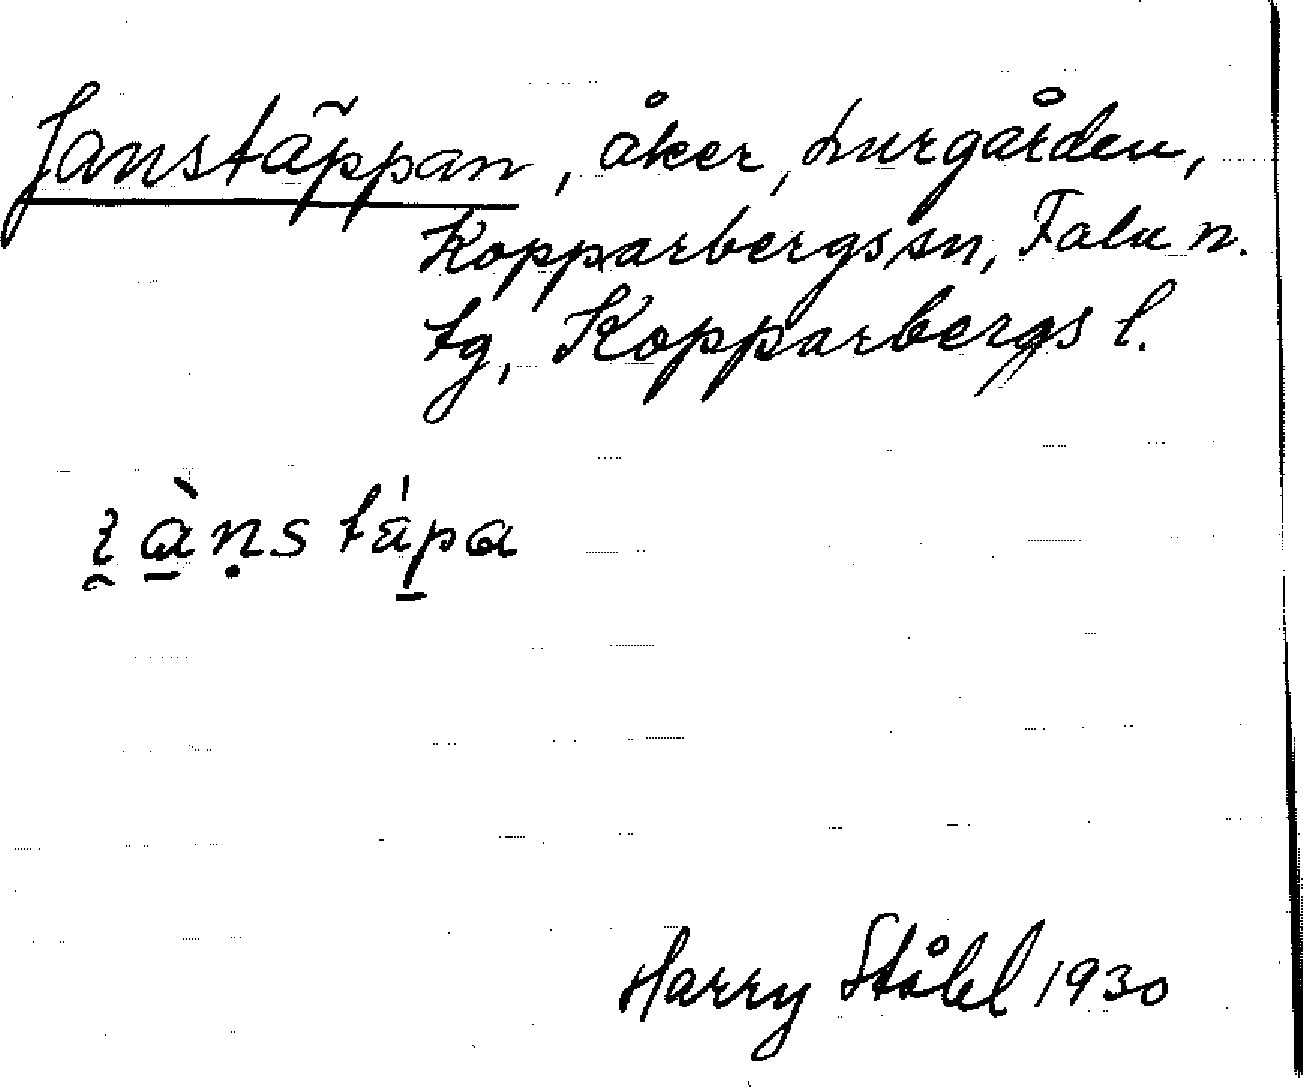 Janstäppan, åker, Lurgården,
Kopparbergs sn, Falu n.
tg, Kopparbergs l.
Harry Ståhl 1930